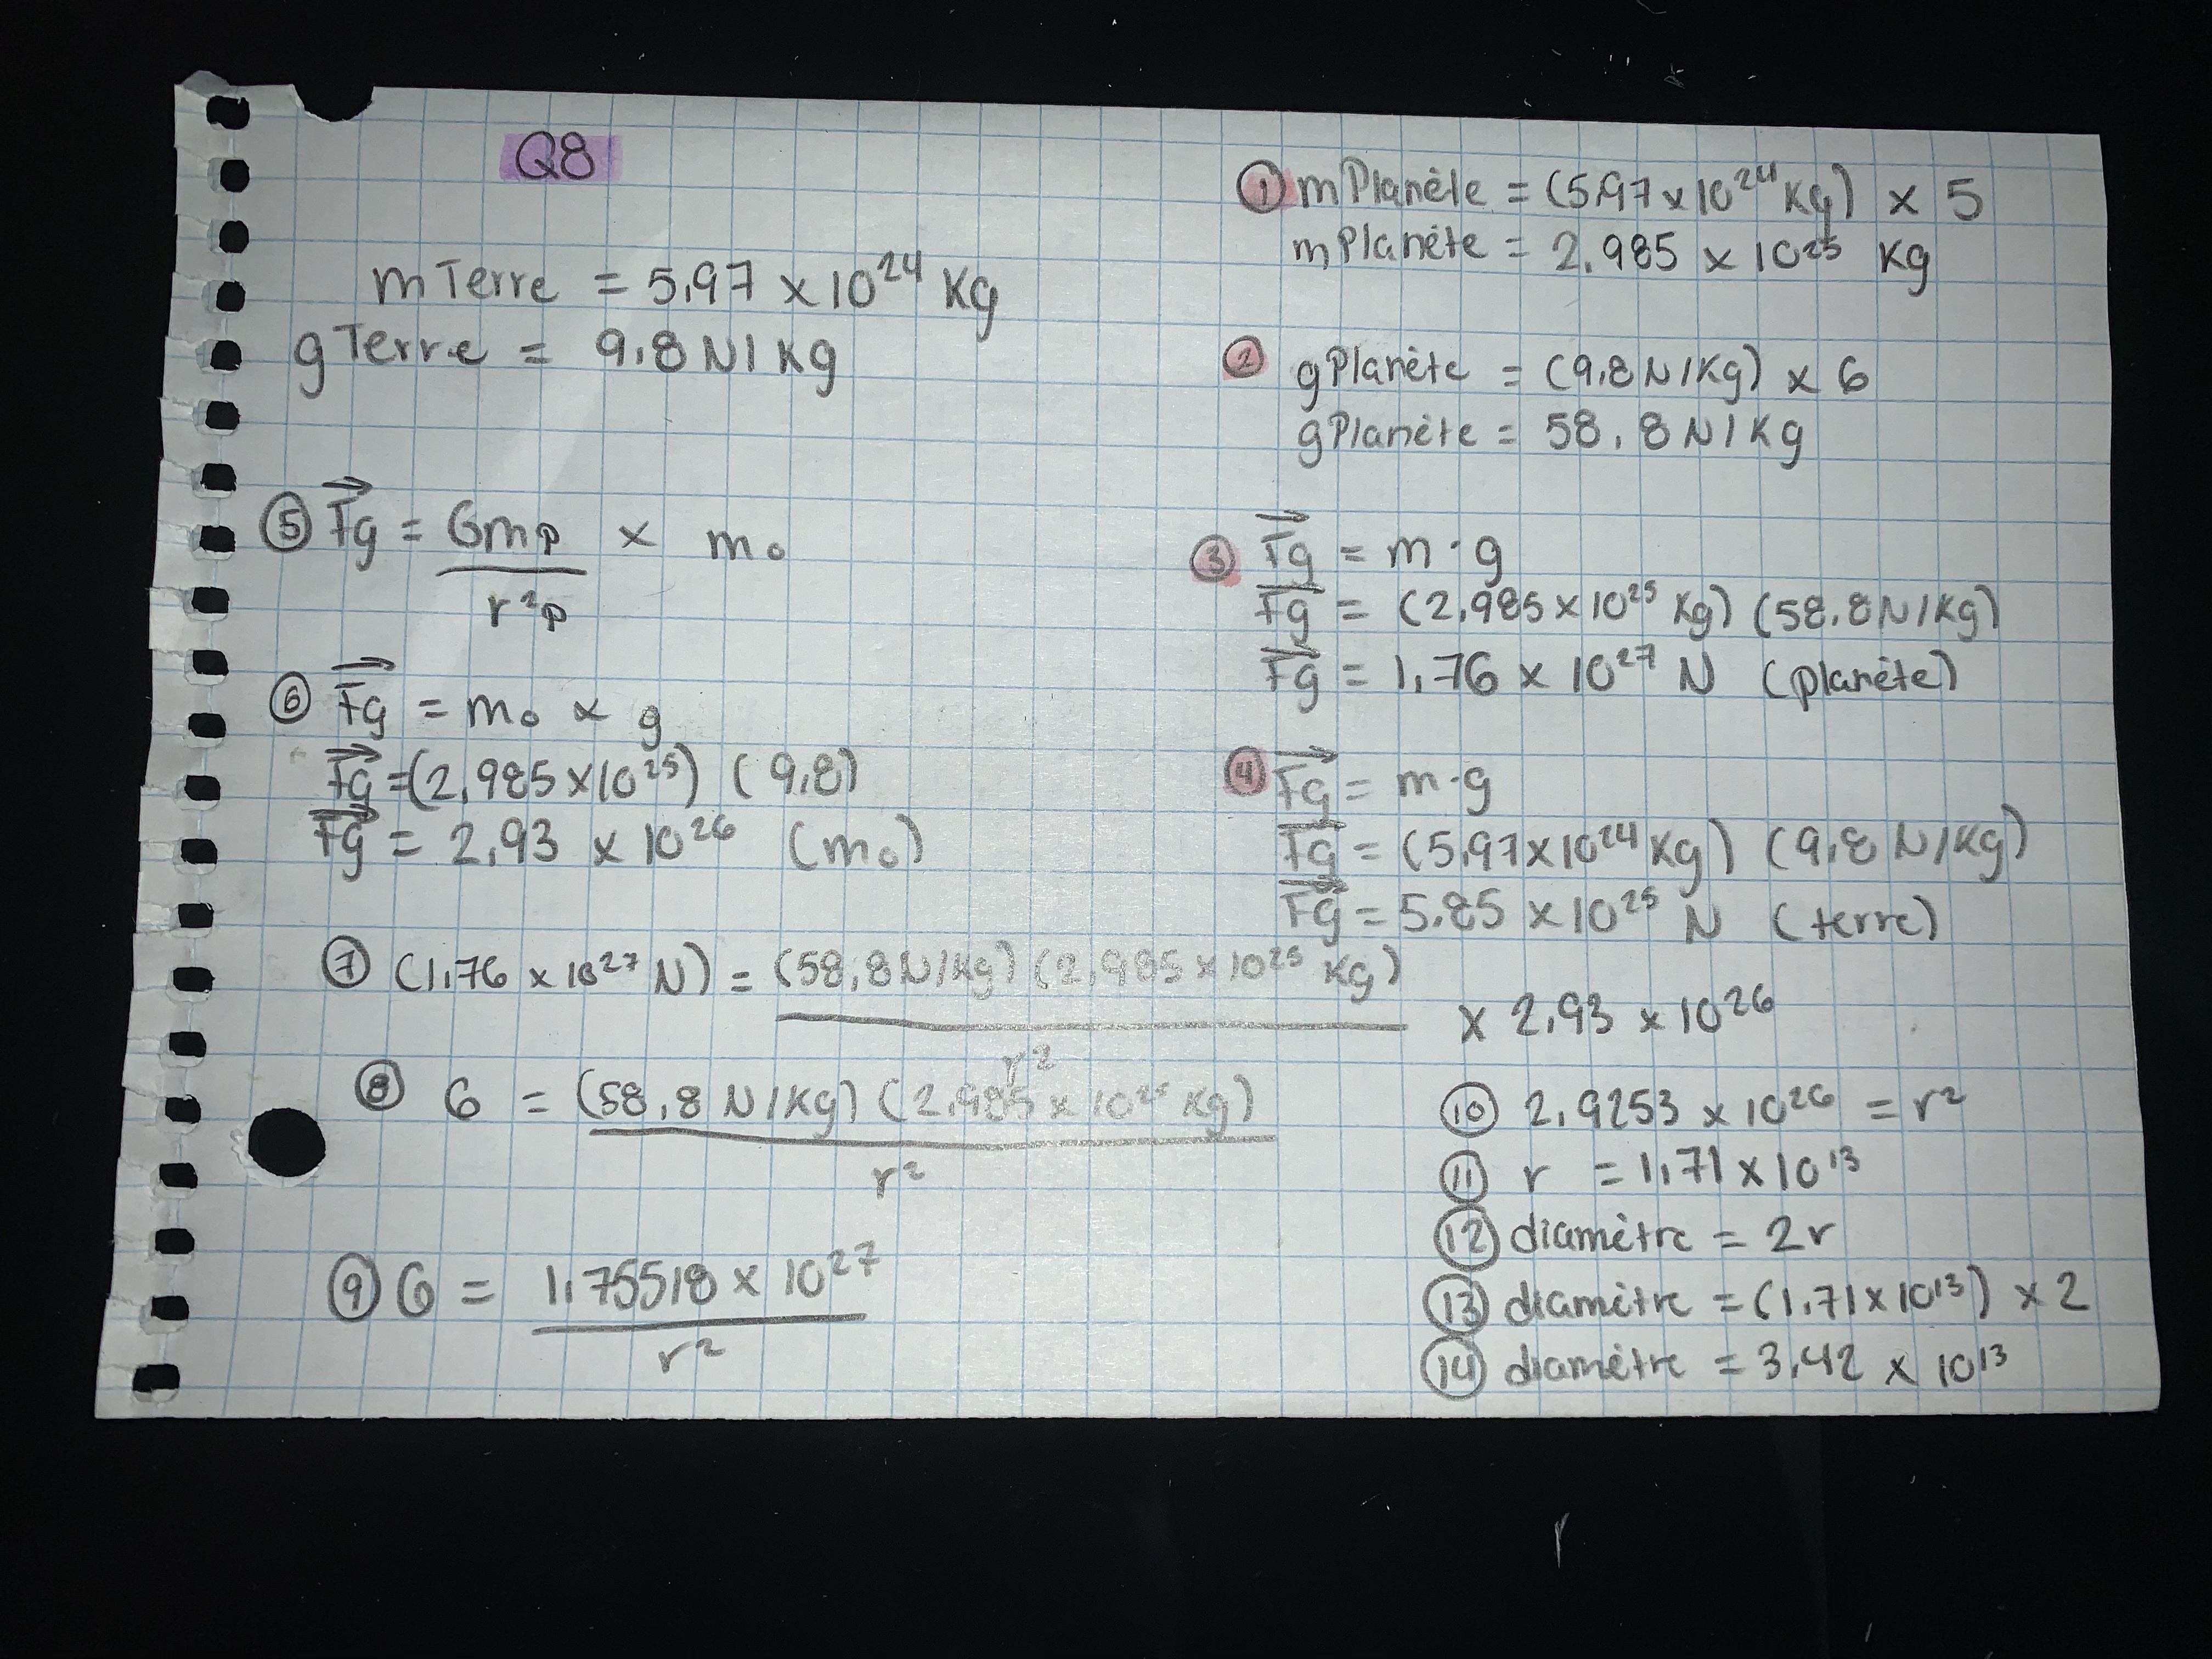 Q8
mTerre = 5,97 x 10²⁴ Kg
gTerre = 9,8 N/Kg
① mPlanète = (5,97 x 10²⁴ Kg) x 5
mPlanète = 2,985 x 10²⁵ Kg
② gPlanète = (9,8 N/Kg) x 6
gPlanète = 58,8 N/Kg
③ Fg = m · g
Fg = (2,985 x 10²⁵ Kg) (58,8 N/Kg)
Fg = 1,76 x 10²⁷ N (planète)
④ Fg = m · g
Fg = (5,97 x 10²⁴ Kg) (9,8 N/Kg)
Fg = 5,85 x 10²⁵ N (terre)
⑤ Fg = Gmp x mo
r²p
⑥ Fg = mo x g
Fg = (2,985 x 10²⁵) (9,8)
Fg = 2,93 x 10²⁶ (mo)
⑦ (1,76 x 10²⁷ N) = (58,8 N/Kg) (2,985 x 10²⁵ Kg) x 2,93 x 10²⁶
r²
⑧ 6 = (58,8 N/Kg) (2,985 x 10²⁵ Kg)
r²
⑨ 6 = 1,75518 x 10²⁷
r²
⑩ 2,9253 x 10²⁶ = r²
⑪ r = 1,71 x 10¹³
⑫ diamètre = 2r
⑬ diamètre = (1,71 x 10¹³) x 2
⑭ diamètre = 3,42 x 10¹³